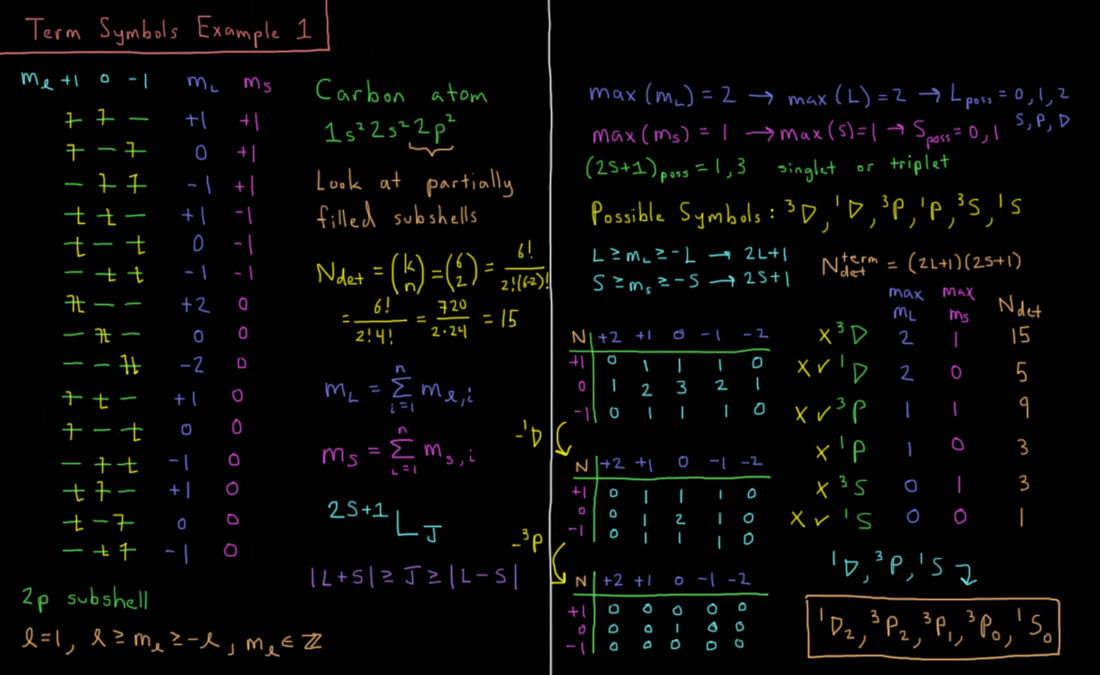 Term Symbols Example 1
mℓ +1 0 -1 mL ms
↿ ↿ — +1 +1
↿ — ↿ 0 +1
— ↿ ↿ -1 +1
⇂ ⇂ — +1 -1
⇂ — ⇂ 0 -1
— ⇂ ⇂ -1 -1
↿⇂ — — +2 0
— ↿⇂ — 0 0
— — ↿⇂ -2 0
↿ ⇂ — +1 0
↿ — ⇂ 0 0
— ↿ ⇂ -1 0
⇂ ↿ — +1 0
⇂ — ↿ 0 0
— ⇂ ↿ -1 0
2p subshell
ℓ=1, ℓ ≥ mℓ ≥ -ℓ, mℓ ∈ ℤ
Carbon atom
1s² 2s² 2p²
Look at partially
filled subshells
Ndet = (k n) = (6 2) = 6!/2!(6-2)!
= 6!/2!4! = 720/2·24 = 15
mL = Σ i=1 n mℓ,i
ms = Σ i=1 n ms,i
2S+1 L J
|L+S| ≥ J ≥ |L-S|
max(mL) = 2 → max(L) = 2 → Lposs = 0, 1, 2
S, P, D
max(ms) = 1 → max(S) = 1 → Sposs = 0, 1
(2S+1)poss = 1, 3 singlet or triplet
Possible Symbols: ³D, ¹D, ³P, ¹P, ³S, ¹S
L ≥ mL ≥ -L → 2L+1
S ≥ ms ≥ -S → 2S+1
Ndet term = (2L+1)(2S+1)
N +2 +1 0 -1 -2
+1 0 1 1 1 0
0 1 2 3 2 1
-1 0 1 1 1 0
-¹D
N +2 +1 0 -1 -2
+1 0 1 1 1 0
0 0 1 2 1 0
-1 0 1 1 1 0
-³P
N +2 +1 0 -1 -2
+1 0 0 0 0 0
0 0 0 1 0 0
-1 0 0 0 0 0
max mL max ms Ndet
x ³D 2 1 15
x ✓ ¹D 2 0 5
x ✓ ³P 1 1 9
x ¹P 1 0 3
x ³S 0 1 3
x ✓ ¹S 0 0 1
¹D, ³P, ¹S
¹D₂, ³P₂, ³P₁, ³P₀, ¹S₀